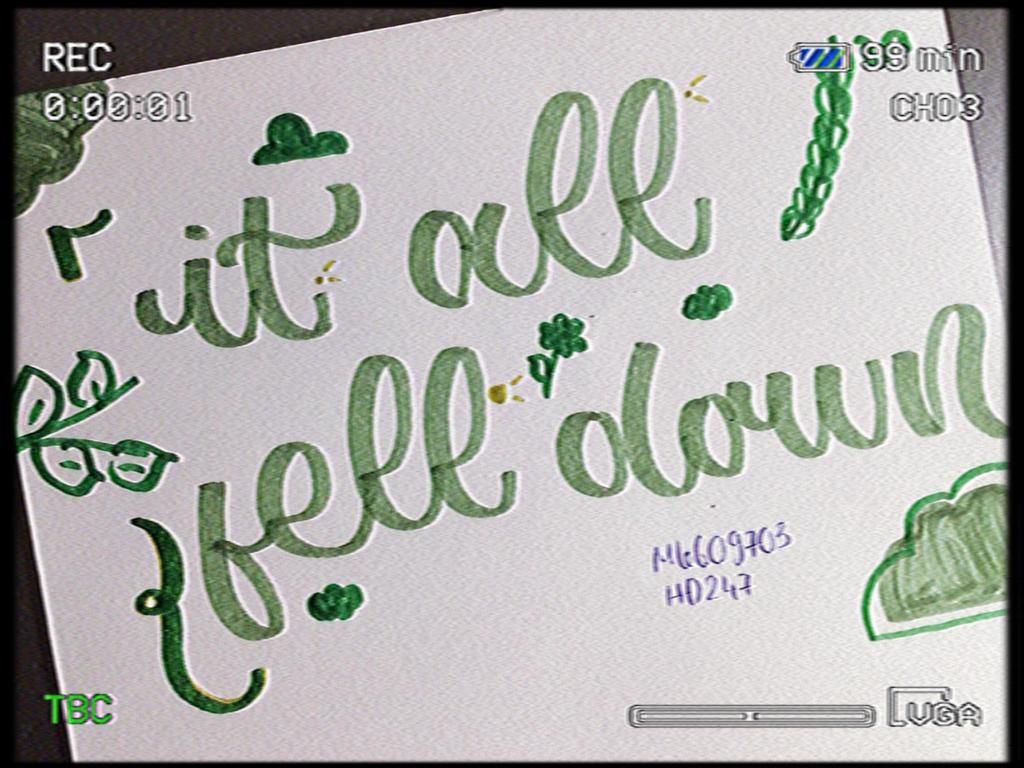 REC
0:00:01
99 min
CH03
it all
fell down
HD247
TBC
VGA